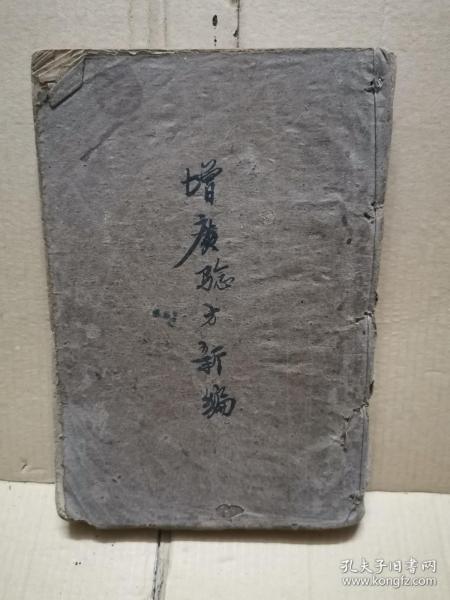 增廣騐方新編
孔夫子旧书网
www.kongfz.com